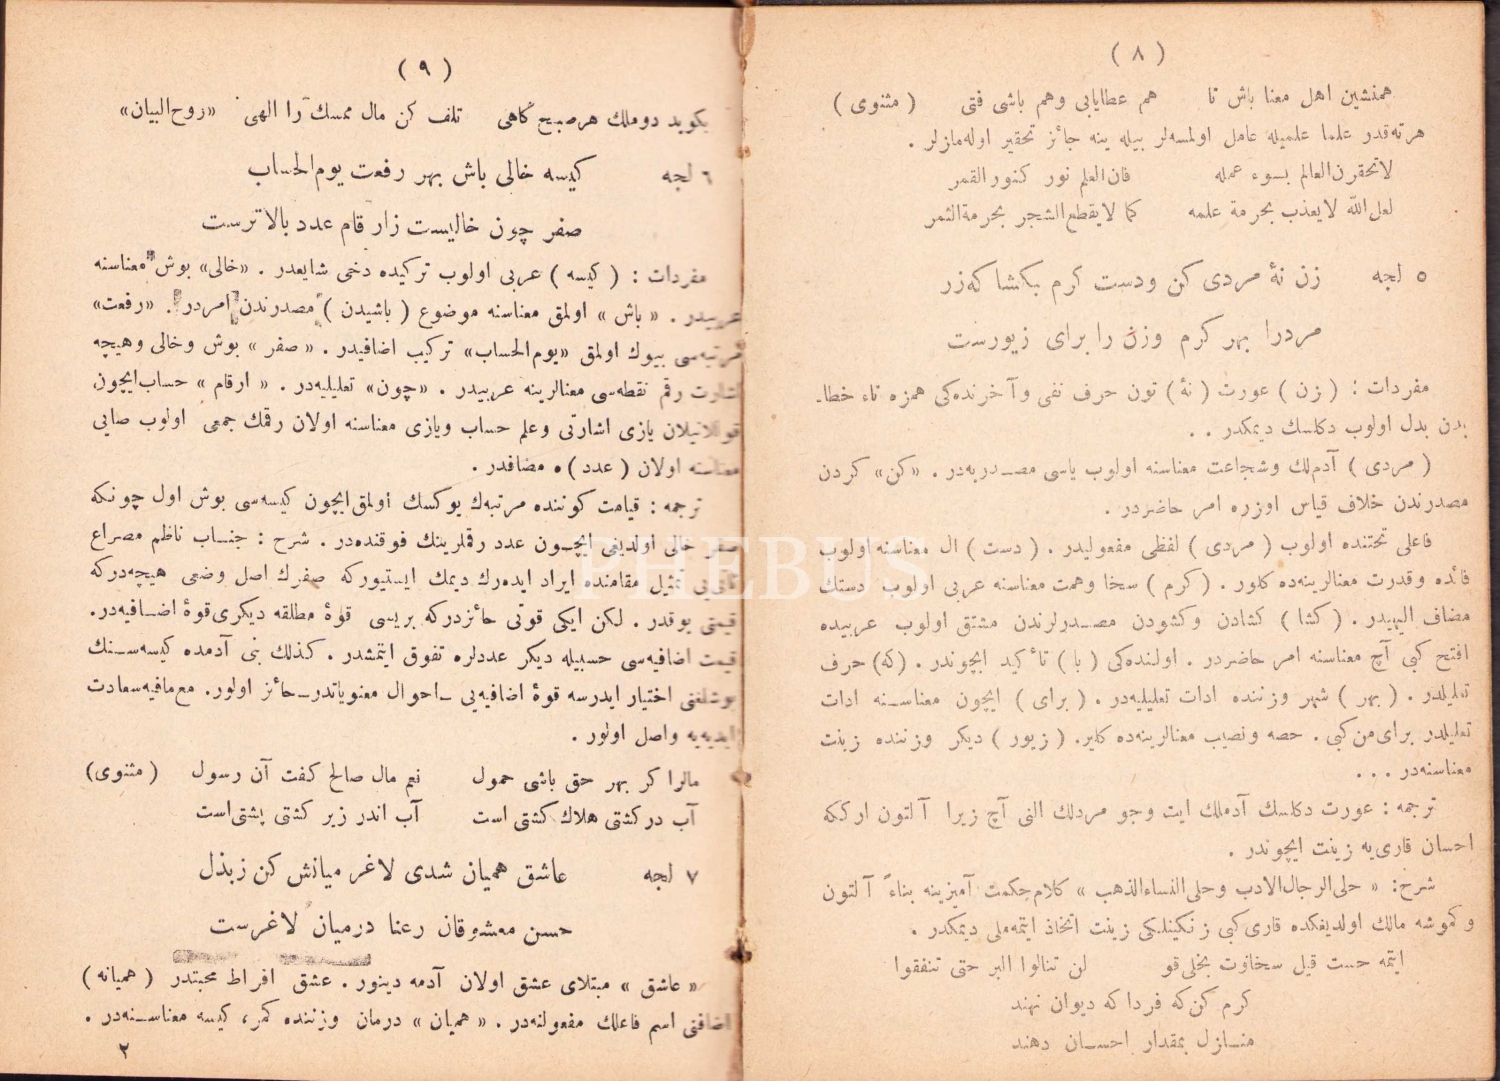 ( ٨ )
همنشین اهل معنا باش تا هم عطایابی وهم باشی فتی ( مثنوی )
هرنه‌قدر علما علمیله عامل اولمسه‌لر بیله ینه جائز تحقیر اوله‌مازلر .
لاتحقرن العالم بسوء عمله فان العلم نور کنور القمر
لعل الله لایعذب بحرمة علمه کما لایقطع الشجر بحرمة الثمر
٥ لجه زن نهٔ مردی کن ودست کرم بکشا که‌زر
مردرا بهر کرم وزن را برای زیورست
مفردات : ( زن ) عورت ( نهٔ ) نون حرف نفی وآخرنده‌کی همزه تاء خطا-
بدن بدل اولوب دکلسك دیمکدر . .
( مردی ) آدملك وشجاعت معناسنه اولوب یاسی مصدریه‌در . «کن» کردن
مصدرندن خلاف قیاس اوزره امر حاضردر .
فاعلی تحتنده اولوب ( مردی ) لفظی مفعولیدر . ( دست ) ال معناسنه اولوب
فائده وقدرت معنالرینه‌ده کلور . ( کرم ) سخا وهمت معناسنه عربی اولوب دستك
مضاف الیهیدر . ( کشا ) کشادن وکشودن مصدرلرندن مشتق اولوب عربیده
افتح کبی آچ معناسنه امر حاضردر . اولنده‌کی ( با ) تأکید ایچوندر . (که) حرف
تعلیلدر . ( بهر ) شهر وزننده ادات تعلیلیه‌در . ( برای ) ایچون معناسنه ادات
تعلیلدر برای‌من کبی . حصه ونصیب معنالرینه‌ده کلیر. ( زیور ) دیکر وزننده زینت
معناسنه‌در . . .
ترجمه : عورت دکلسك آدملك ایت وجو مردلك النی آچ زیرا آلتون ارککه
احسان قاری‌یه زینت ایچوندر .
شرح: « حلی الرجال الادب وحلی النساء الذهب » کلام حکمت آمیزینه بناءً آلتون
وکموشه مالك اولدیغکده قاری کبی زنکینلیکی زینت اتخاذ ایتمه‌ملی دیمکدر .
ایتمه حست قیل سخاوت بخلی قو لن تنالوا البر حتی تنفقوا
کرم کن که فردا که دیوان نهند
منازل بمقدار احسان دهند
( ٩ )
بکوید دوملك هرصبح کاهی تلف کن مال ممسك را الهی «روح البیان»
٦ لجه کیسه خالی باش بهر رفعت یوم الحساب
صفر چون خالیست زارقام عدد بالاترست
مفردات : ( کیسه ) عربی اولوب ترکیده دخی شایعدر . «خالی» بوش معناسنه
عربیدر . « باش » اولمق معناسنه موضوع ( باشیدن ) مصدرندن امردر . «رفعت»
مرتبه‌سی بیوك اولمق «یوم الحساب» ترکیب اضافیدر . « صفر » بوش وخالی وهیچه
اشارت رقم نقطه‌سی معنالرینه عربیدر . «چون» تعلیلیه‌در . « ارقام » حساب‌ایچون
قوللانیلان یازی اشارتی وعلم حساب ویازی معناسنه اولان رقمك جمعی اولوب صایی
معناسنه اولان ( عدد ) ه مضافدر .
ترجمه : قیامت کوننده مرتبه‌ك یوکسك اولمق‌ایچون کیسه‌سی بوش اول چونکه
صفر خالی اولدیغی ایچون عدد رقملرینك فوقنده‌در . شرح : جناب ناظم مصراع
ثانی‌یی تمثیل مقامنده ایراد ایده‌رك دیمك ایستیورکه صفرك اصل وضعی هیچه‌درکه
قیمتی یوقدر . لکن ایکی قوتی حائزدرکه بریسی قوهٔ مطلقه دیکری قوهٔ اضافیه‌در.
قیمت اضافیه‌سی حسبیله دیکر عددلره تفوق ایتمشدر . کذلك بنی آدمده کیسه‌سنك
بوشلغنی اختیار ایدرسه قوهٔ اضافیه‌یی -احوال معنویاتدر- حائز اولور. مع‌مافیه‌سعادت
ابدیه‌یه واصل اولور .
مالرا کر بهر حق باشی حمول نعم مال صالح کفت آن رسول (مثنوی)
آب درکشتی هلاك کشتی است آب اندر زیر کشتی پشتی‌است
٧ لجه عاشق همیان شدی لاغر میانش کن زبذل
حسن معشوقان رعنا درمیان لاغرست
« عاشق » مبتلای عشق اولان آدمه دینور . عشق افراط محبتدر ( همیانه )
اضافتی اسم فاعلك مفعولنه‌در . « همیان » درمان وزننده کمر، کیسه معناسنه‌در .
٢
PHEBUS